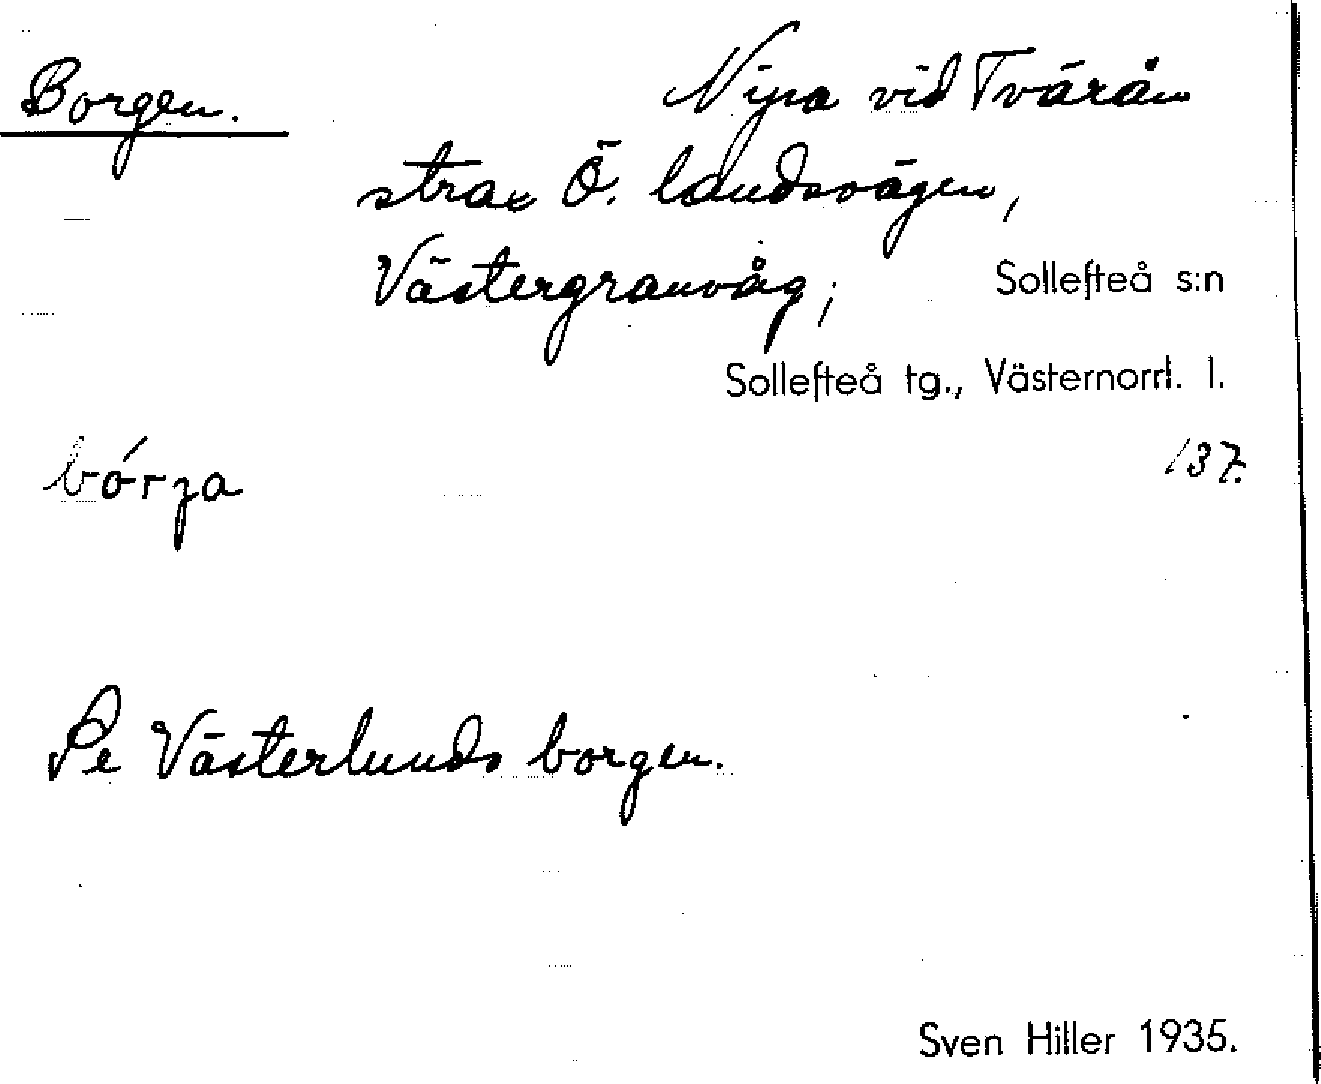 Borgen.
Nipa vid Tvärån
strax Ö. landsvägen,
Västergranvåg;
Sollefteå s:n
Sollefteå tg., Västernorrl. l.
137.
bórʒa
Se Västerlunds borgen.
Sven Hiller 1935.